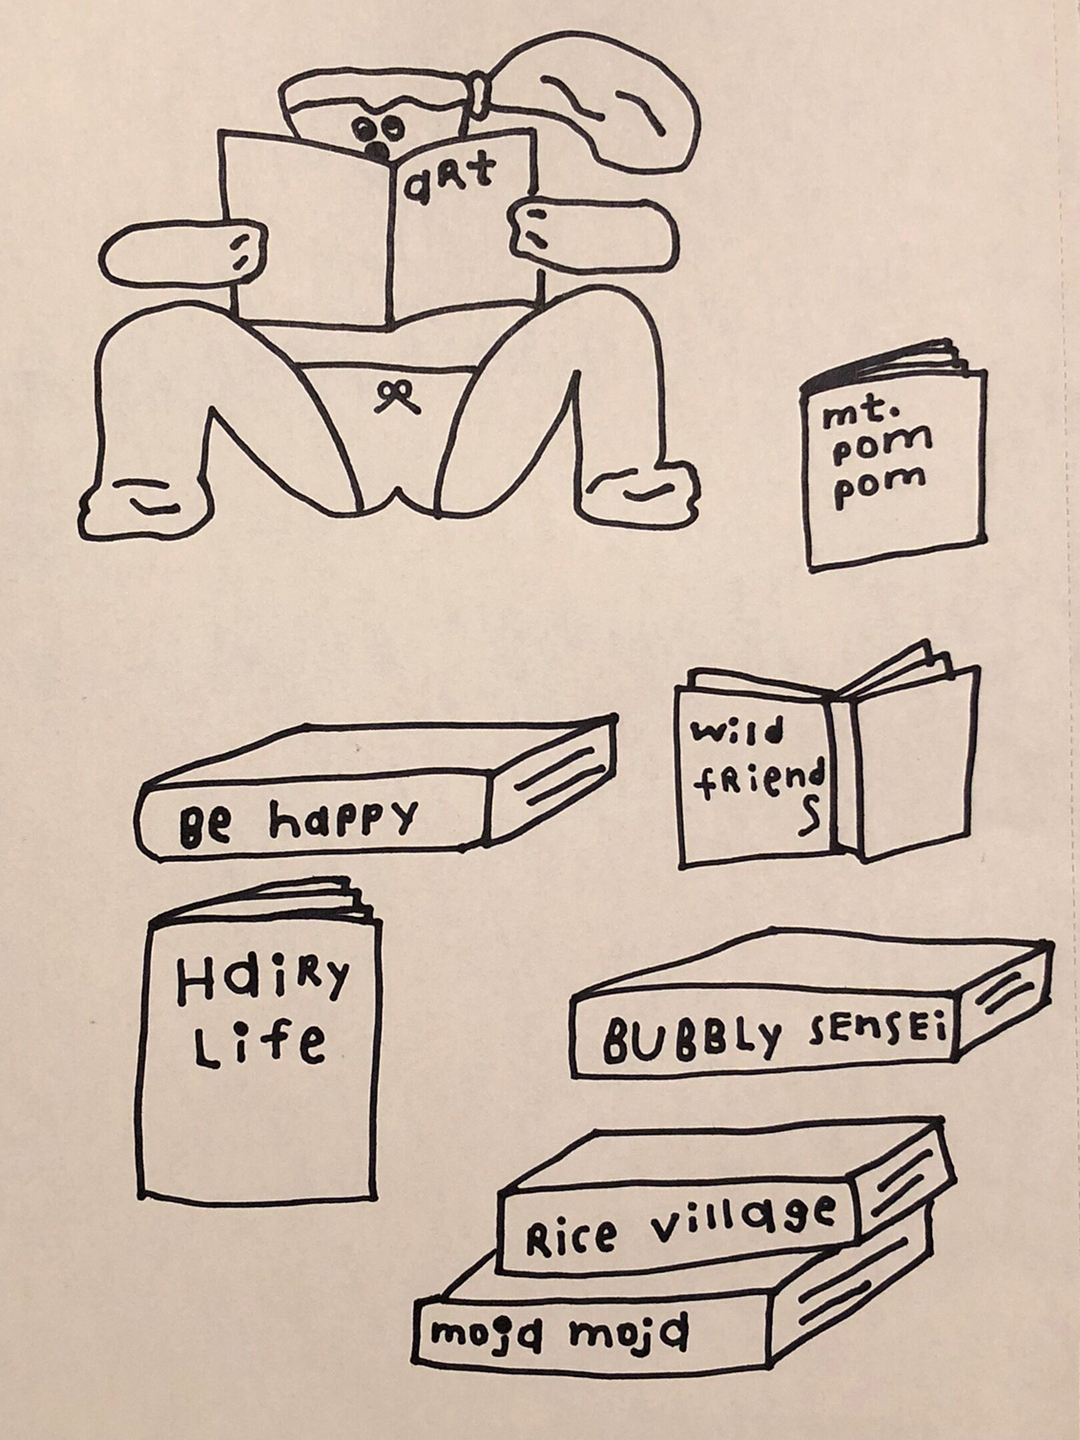 aRt
mt.
pom
pom
wild
fRiend
s
Be happy
HaiRy
Life
BUBBLY sEnsEi
Rice village
moja moja